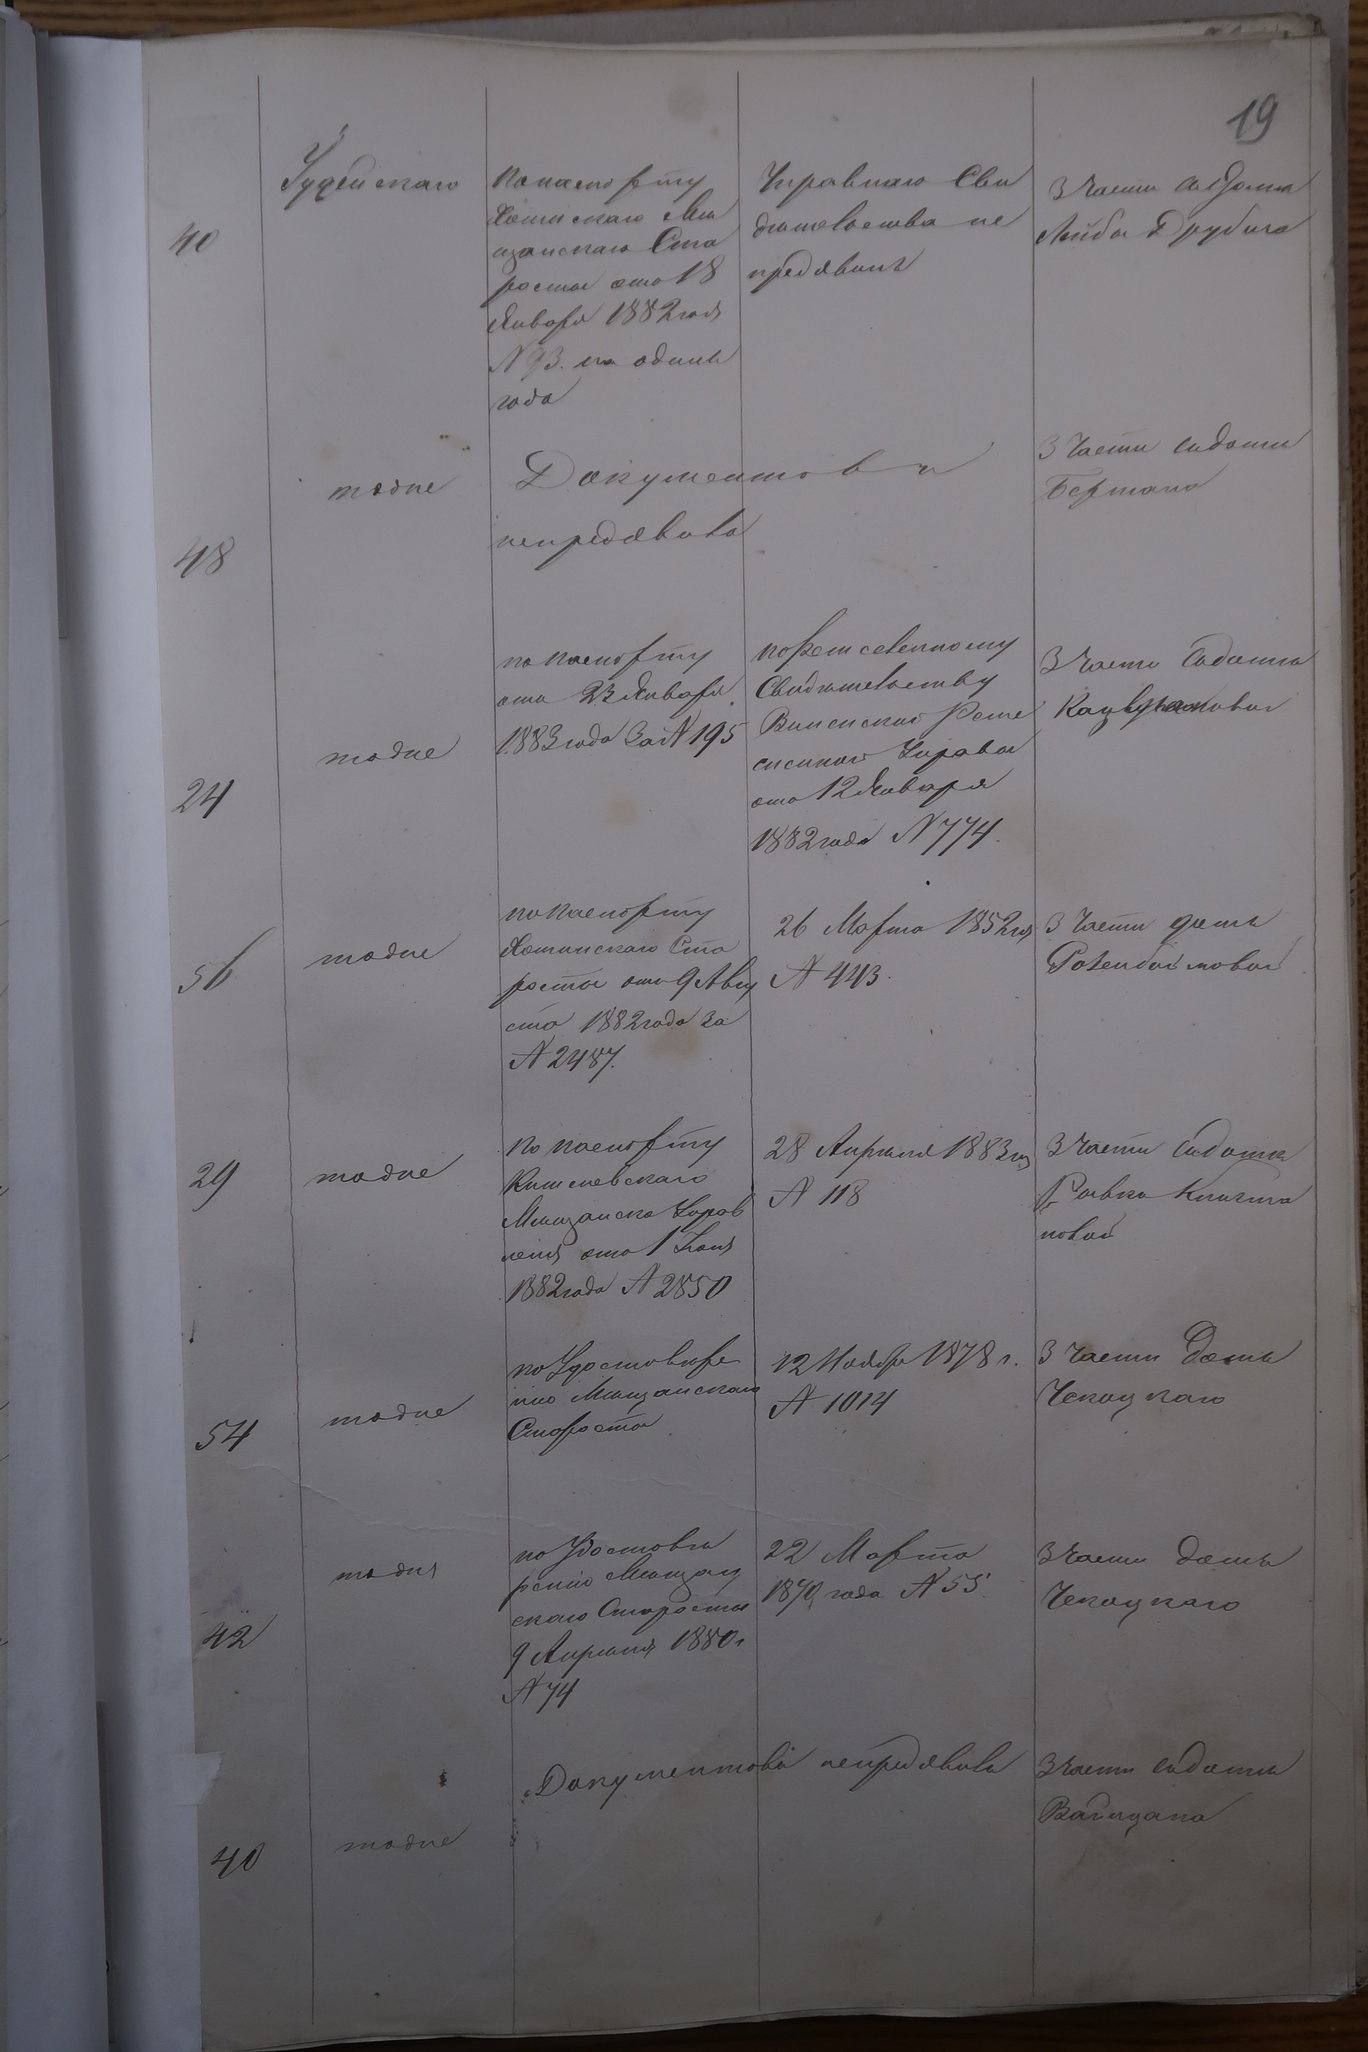 19
40
Іудейскаго
по паспорту
Хотинскаго Мѣ
щанскаго Ста
росты отъ 18
Января 1882 года
N 93. на одинъ
годъ
Управнаго Сви
дѣтельства не
предявилъ
3 части въ Дома
Лейбы Друбича
48
тоже
Документовъ
непредявилъ
3 Части въ домѣ
Бермана
24
тоже
по паспорту
отъ 23 Января
1883 года За N 195
по Ремесленному
Свидѣтельству
Реме
сленной Управы
отъ 12 Января
1882 года N 774.
3 Части въ домѣ
56
тоже
по паспорту
Хотинскаго Ста
росты отъ 9 Авгу
ста 1882 года За
N 2487.
26 Марта 1852 год
N 443.
3 Части домъ
29
тоже
По паспорту
Кишиневскаго
Мѣщанска Управ
ленія отъ 1 Іюня
1882 года N 2850
28 Апрѣля 1883 год
N 118
3 части въ домѣ
Ривки
новой
54
тоже
по Удостовѣре
нію Мѣщанскаго
Старосты
12 Ноября 1878 г.
N 1014
3 части Домъ
Чекацкаго
42
тоже
по Удостовѣ
ренію Мѣщан
скаго Старосты
9 Апрѣля 1880 г
N 74
22 Марта
1870 года N 55.
3 части домъ
Чекацкаго
40
тоже
Документовъ непредявилъ
3 части въ домѣ
Вайцмана